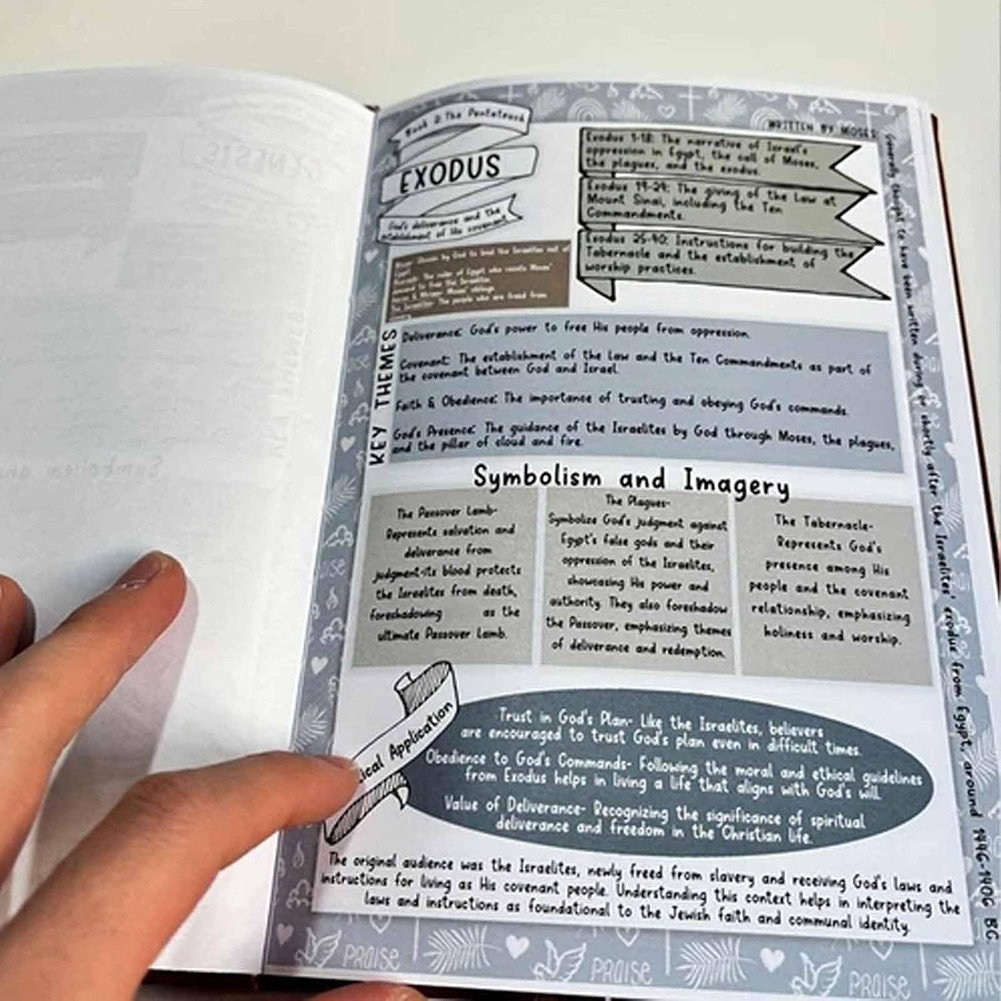 Book 2: The Pentateuch
EXODUS
God's deliverance and the
establishment of His covenant
WRITTEN BY MOSES:
Exodus 1-18: The narrative of Israel's
oppression in Egypt, the call of Moses,
the plagues, and the exodus.
Exodus 19-24: The giving of the Law at
Mount Sinai, including the Ten
Commandments.
Exodus 25-40: Instructions for building the
Tabernacle and the establishment of
worship practices.
Moses: Chosen by God to lead the Israelites out of
Egypt.
Pharaoh: The ruler of Egypt who resists Moses'
demand to free the Israelites.
Aaron & Miriam: Moses' siblings
The Israelites: The people who are freed from
KEY THEMES
Deliverance: God's power to free His people from oppression.
Covenant: The establishment of the Law and the Ten Commandments as part of
the covenant between God and Israel.
Faith & Obedience: The importance of trusting and obeying God's commands.
God's Presence: The guidance of the Israelites by God through Moses, the plagues,
and the pillar of cloud and fire.
Symbolism and Imagery
The Passover Lamb-
Represents salvation and
deliverance from
judgment-its blood protects
the Israelites from death,
foreshadowing as the
ultimate Passover Lamb.
The Plagues-
Symbolize God's judgment against
Egypt's false gods and their
oppression of the Israelites,
showcasing His power and
authority. They also foreshadow
the Passover, emphasizing themes
of deliverance and redemption.
The Tabernacle-
Represents God's
presence among His
people and the covenant
relationship, emphasizing
holiness and worship.
ical Application
Trust in God's Plan- Like the Israelites, believers
are encouraged to trust God's plan even in difficult times.
Obedience to God's Commands- Following the moral and ethical guidelines
from Exodus helps in living a life that aligns with God's will.
Value of Deliverance- Recognizing the significance of spiritual
deliverance and freedom in the Christian life.
The original audience was the Israelites, newly freed from slavery and receiving God's laws and
instructions for living as His covenant people. Understanding this context helps in interpreting the
laws and instructions as foundational to the Jewish faith and communal identity.
Generally thought to have been written during or shortly after the Israelites' exodus from Egypt, around 1446-1406 BC
PRAISE
PRAISE
GENESIS